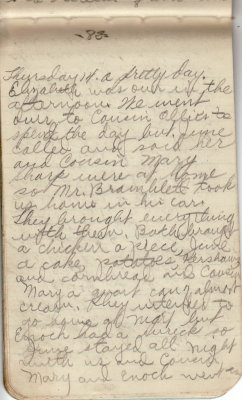 -83-
Thursday 14. a pretty day.
Elizabeth was over in the
afternoon. We went
over to Cousin Ollies to
spend the day but June
called and said her
and Cousin Mary
Sharp were at home
so Mr. Bramblett took
us home in his car.
They brought everything
with them. Both brought
a chicken a piece, June
a cake, potatoes,
and cornbread and Cousin
Mary a quart can almost
cream. They intended to
go home at night but
Enoch had a wreck so
June stayed all night
with us and Cousin
Mary and Enoch went on